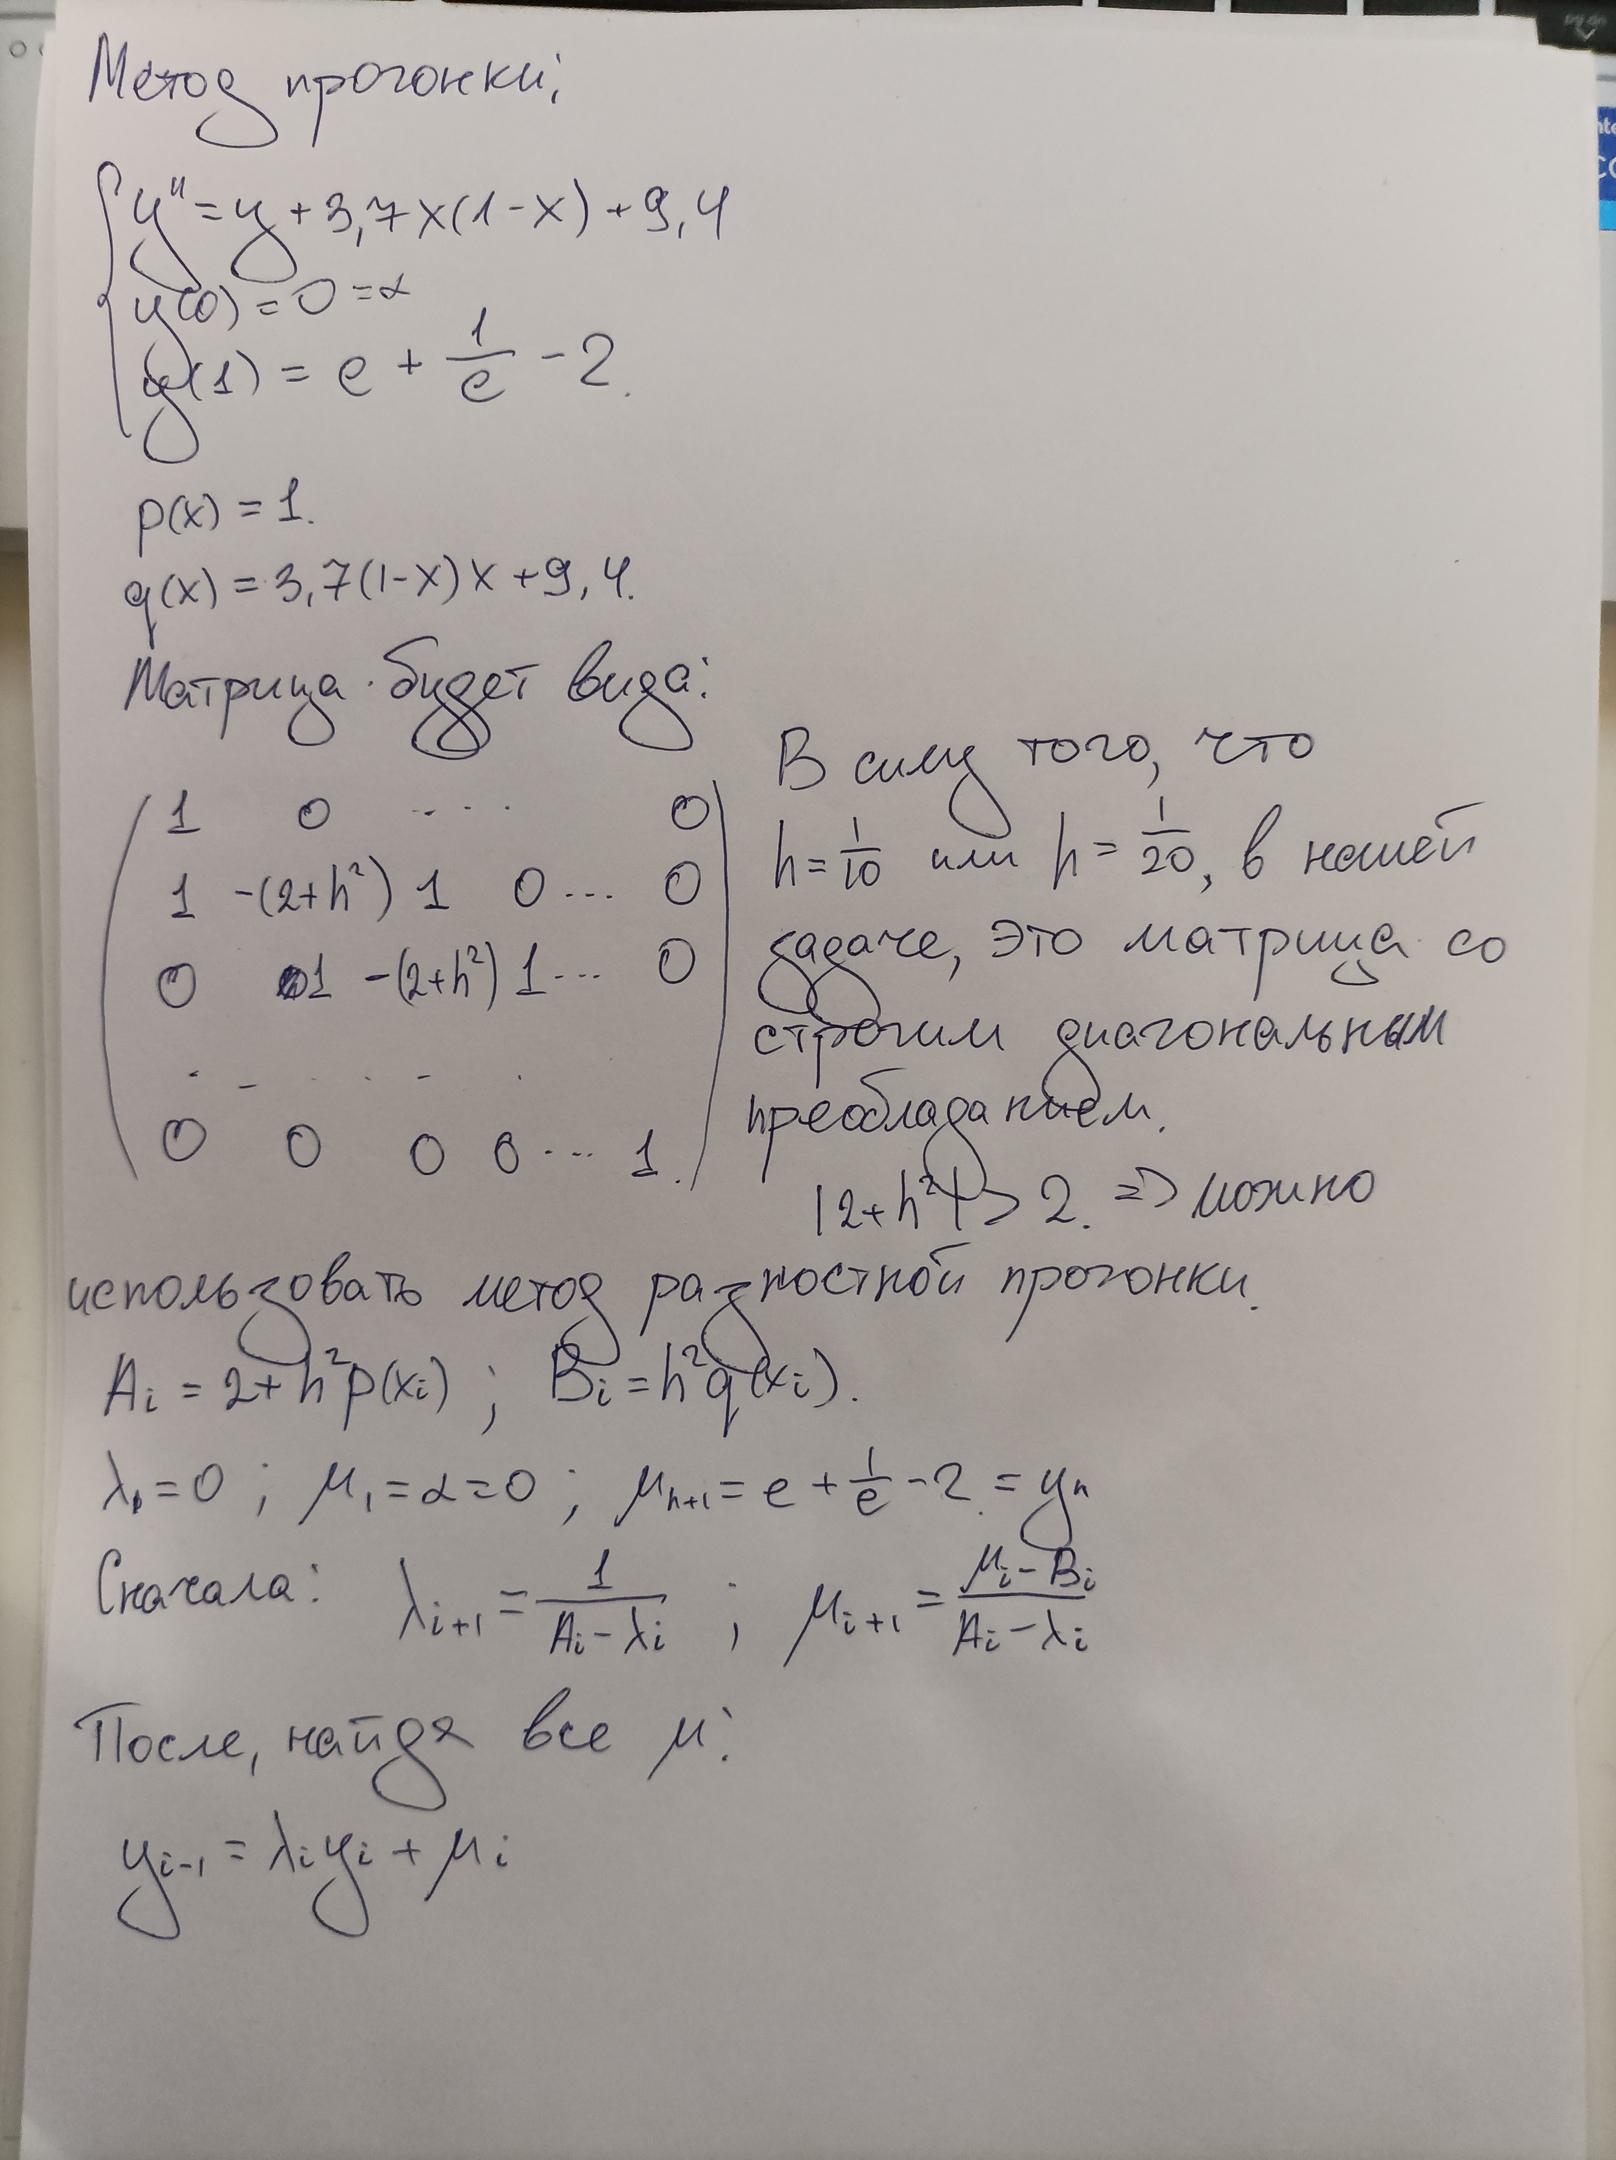 Метод прогонки;
y'' = y + 3,7x(1-x) + 9,4
y(0) = 0 = α
y(1) = e + 1/e - 2.
p(x) = 1.
q(x) = 3,7(1-x)x + 9,4.
Матрица будет вида:
1 0 .... 0
1 -(2+h²) 1 0 ... 0
0 1 -(2+h²) 1 ... 0
. . . . . .
0 0 0 0 ... 1.
В силу того, что
h = 1/10 или h = 1/20, в нашей
задаче, это матрица со
строгим диагональным
преобладанием.
|2+h²| > 2. => можно
использовать метод разностной прогонки.
Ai = 2+h²p(xi) ; Bi = h²q(xi).
λ₁ = 0 ; μ₁ = α = 0 ; μn+1 = e + 1/e - 2. = yn
Сначала: λi+1 = 1/(Ai - λi) ; μi+1 = (μi - Bi)/(Ai - λi)
После, найдя все μ:
yi-1 = λiyi + μi